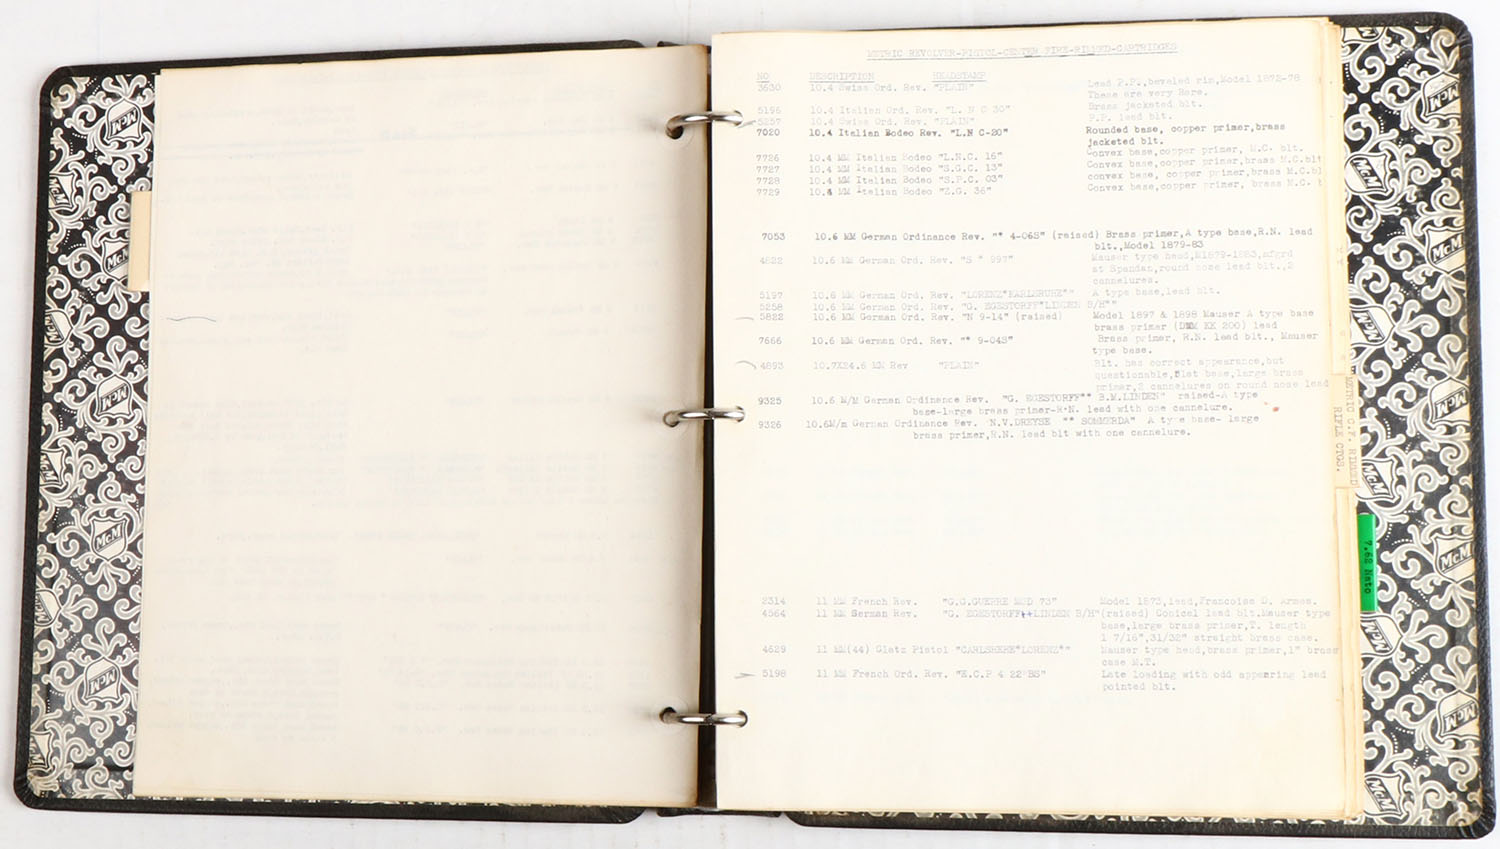 METRIC REVOLVER-PISTOL-CENTER FIRE-RIMMED-CARTRIDGES
NO DESCRIPTION HEADSTAMP
3630 10.4 Swiss Ord. Rev. "PLAIN" Lead P.P., beveled rim,Model 1872-78
These are very Rare.
5196 10.4 Italian Ord. Rev. "L. N C 30" Brass jacketed blt.
5257 10.4 Swiss Ord. Rev. "PLAIN" P.P. lead blt.
7020 10.4 Italian Bodeo Rev. "L.N C-20" Rounded base, copper primer,brass
jacketed blt.
7726 10.4 MM Italian Bodeo "L.N.C. 16" Convex base,copper primer, M.C. blt.
7727 10.4 MM Italian Bodeo "S.G.C. 13" Convex base,copper primer,brass M.C.blt
7728 10.4 MM Italian Bodeo "S.P.C. 03" convex base, copper primer,brass M.C.bl
7729 10.4 MM Italian Bodeo "Z.G. 36" Convex base,copper primer, brass M.C. b
7053 10.6 MM German Ordinance Rev. "* 4-06S" (raised) Brass primer,A type base,R.N. lead
blt.,Model 1879-83
4822 10.6 MM German Ord. Rev. "S * 997" Mauser type head,M1879-1883,mfgrd
at Spandan,round nose lead blt.,2
cannelures.
5197 10.6 MM German Ord. Rev. "LORENZ*KARLSRUHE*" A type base,lead blt.
5258 10.6 MM German Ord. Rev. "G. EGESTORFF*LINDEN B/H**
5822 10.6 MM German Ord. Rev. "N 9-14" (raised) Model 1897 & 1898 Mauser A type base
brass primer (DWM KK 200) lead
7666 10.6 MM German Ord. Rev. "* 9-04S" Brass primer, R.N. lead blt., Mauser
type base.
4893 10.7X24.6 MM Rev "PLAIN" Blt. has correct appearance,but
questionable,flat base,large brass
primer,2 cannelures on round nose lead
9325 10.6 M/M German Ordinance Rev. "G. EGESTORFF** B.M.LINDEN" raised-A type
base-large brass primer-R.N. lead with one cannelure.
9326 10.6M/m German Ordinance Rev. "N.V.DREYSE ** SOMMERDA" A type base- large
brass primer,R.N. lead blt with one cannelure.
2314 11 MM French Rev. "G.G.GUERRE MOD 73" Model 1873,lead,Francoise D. Armes.
4564 11 MM German Rev. "G. EGESTORFF++LINDEN B/H"(raised) Conical lead blt.Mauser type
base,large brass primer,T. length
1 7/16",31/32" straight brass case.
4629 11 MM(44) Glatz Pistol "CARLSHERE*LORENZ*" Mauser type head,brass primer,1" brass
case M.T.
5198 11 MM French Ord. Rev. "E.C.P 4 22 BS" Late loading with odd appearing lead
pointed blt.
METRIC C.F. RIMMED
RIFLE CTGS.
7.62 Nato
McM